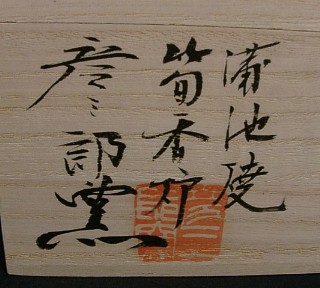 蒲池焼
筍香炉
彦三郎窯